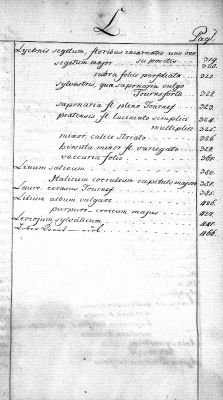 L
Pag.
Lychnis segetum, floribus incarnatis uno ver 319.
segetum major 320.
rubra foliis perfoliata 321.
sylvestris, quæ saponaria vulgo
Tournefortii 322.
saponaria fl. pleno Tournef. 323.
pratensis fl. laciniato simplici 324.
multiplici 325.
minor, calice striato 326.
hirsuta minor fl. variegato 328.
vaccaria foliis
Linum sativum 380.
Italicum coeruleum capitulo majore 381.
Lauro-cerasus Tournef. 385.
Lilium album vulgare 426.
purpuro-croceum majus 427.
Leucojum sylvaticum 441.